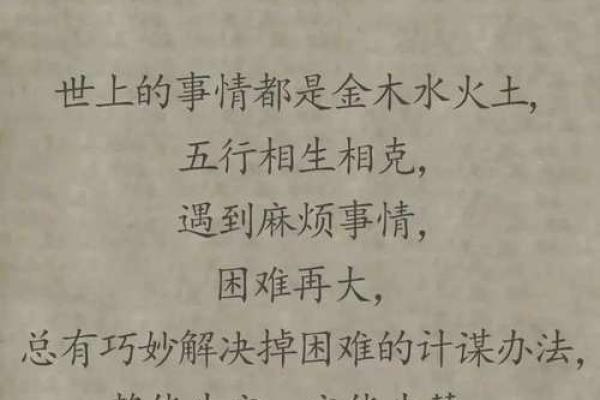 世上的事情都是金木水火土,
五行相生相克,
遇到麻烦事情,
困难再大,
总有巧妙解决掉困难的计谋办法,